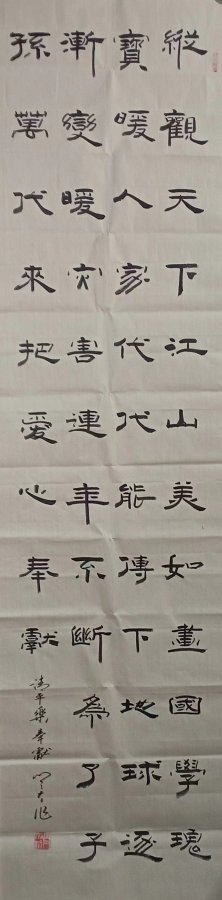 縱觀天下江山美如畫國學瑰
寶暖人家代代能傳下地球逐
漸變暖灾害連年不斷為了子
孫萬代來把愛心奉獻
清平樂奉獻